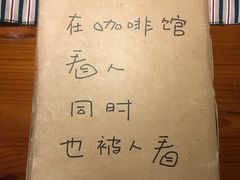 在咖啡馆
看人
同时
也被人看